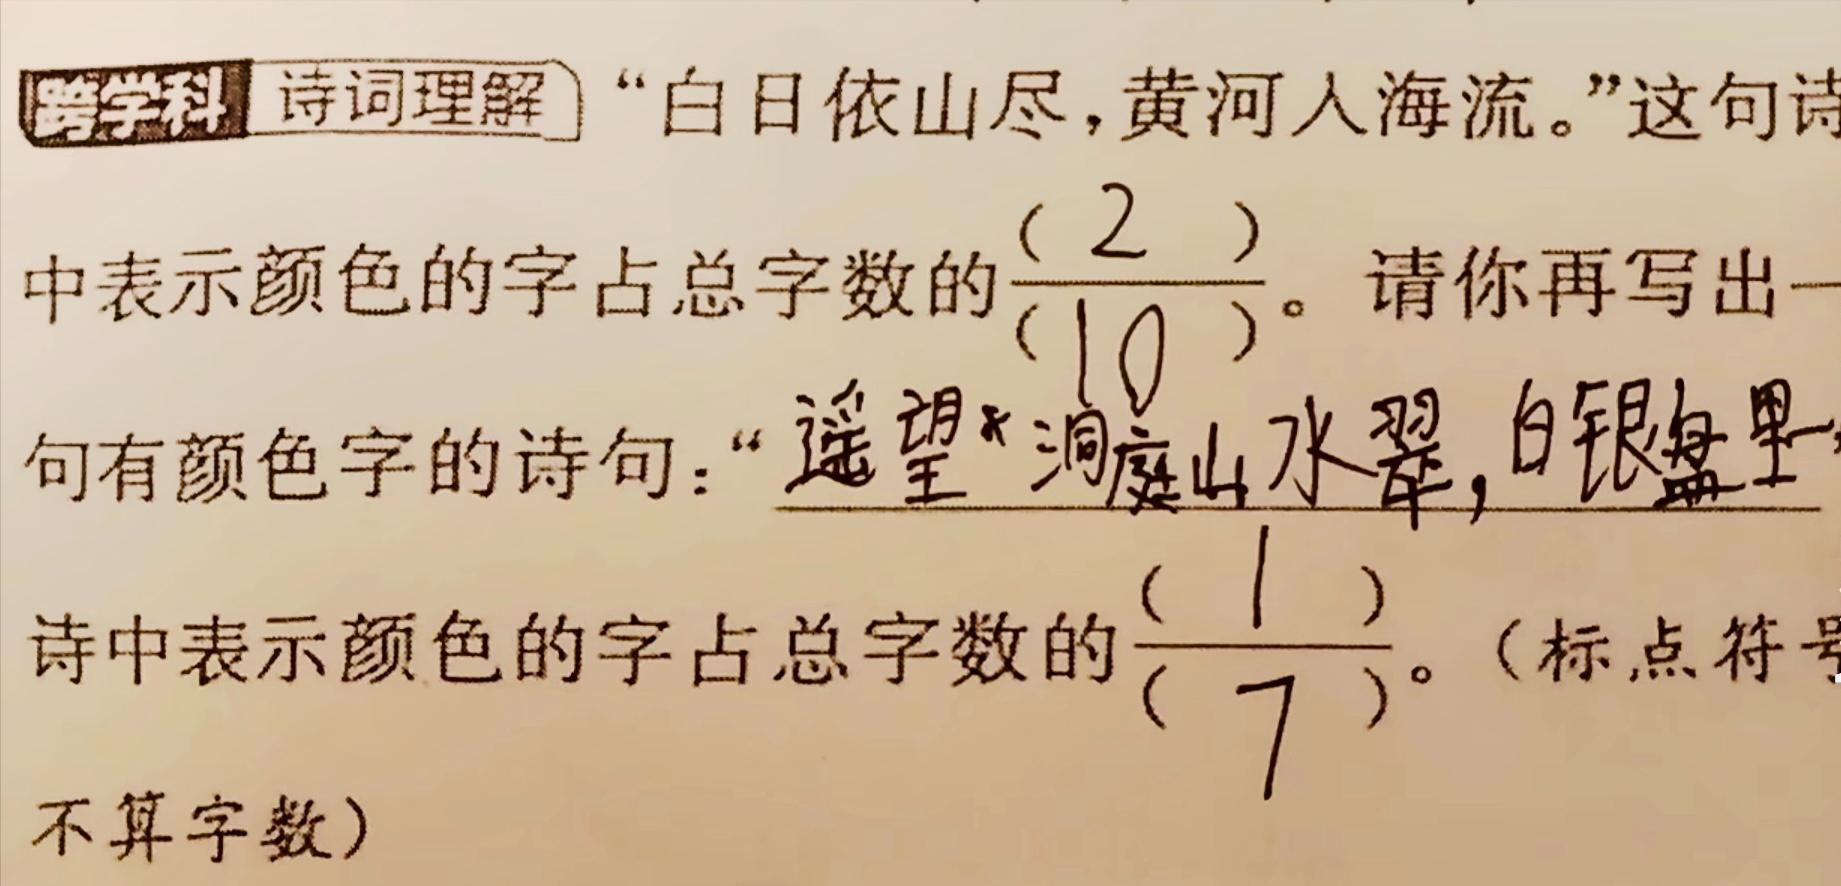 跨学科 诗词理解 “白日依山尽,黄河入海流。”这句诗
中表示颜色的字占总字数的(2)/(10)。请你再写出一
句有颜色字的诗句:“遥望洞庭山水翠,白银盘里一
诗中表示颜色的字占总字数的(1)/(7)。(标点符号
不算字数)